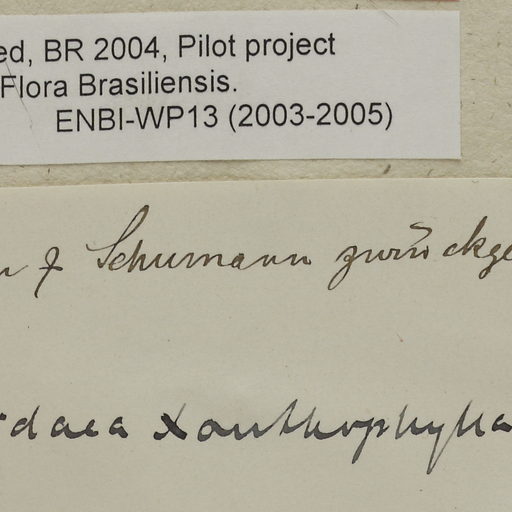 ed, BR 2004, Pilot project
Flora Brasiliensis.
ENBI-WP13 (2003-2005)
Schumann zurückge
daea xanthophylla